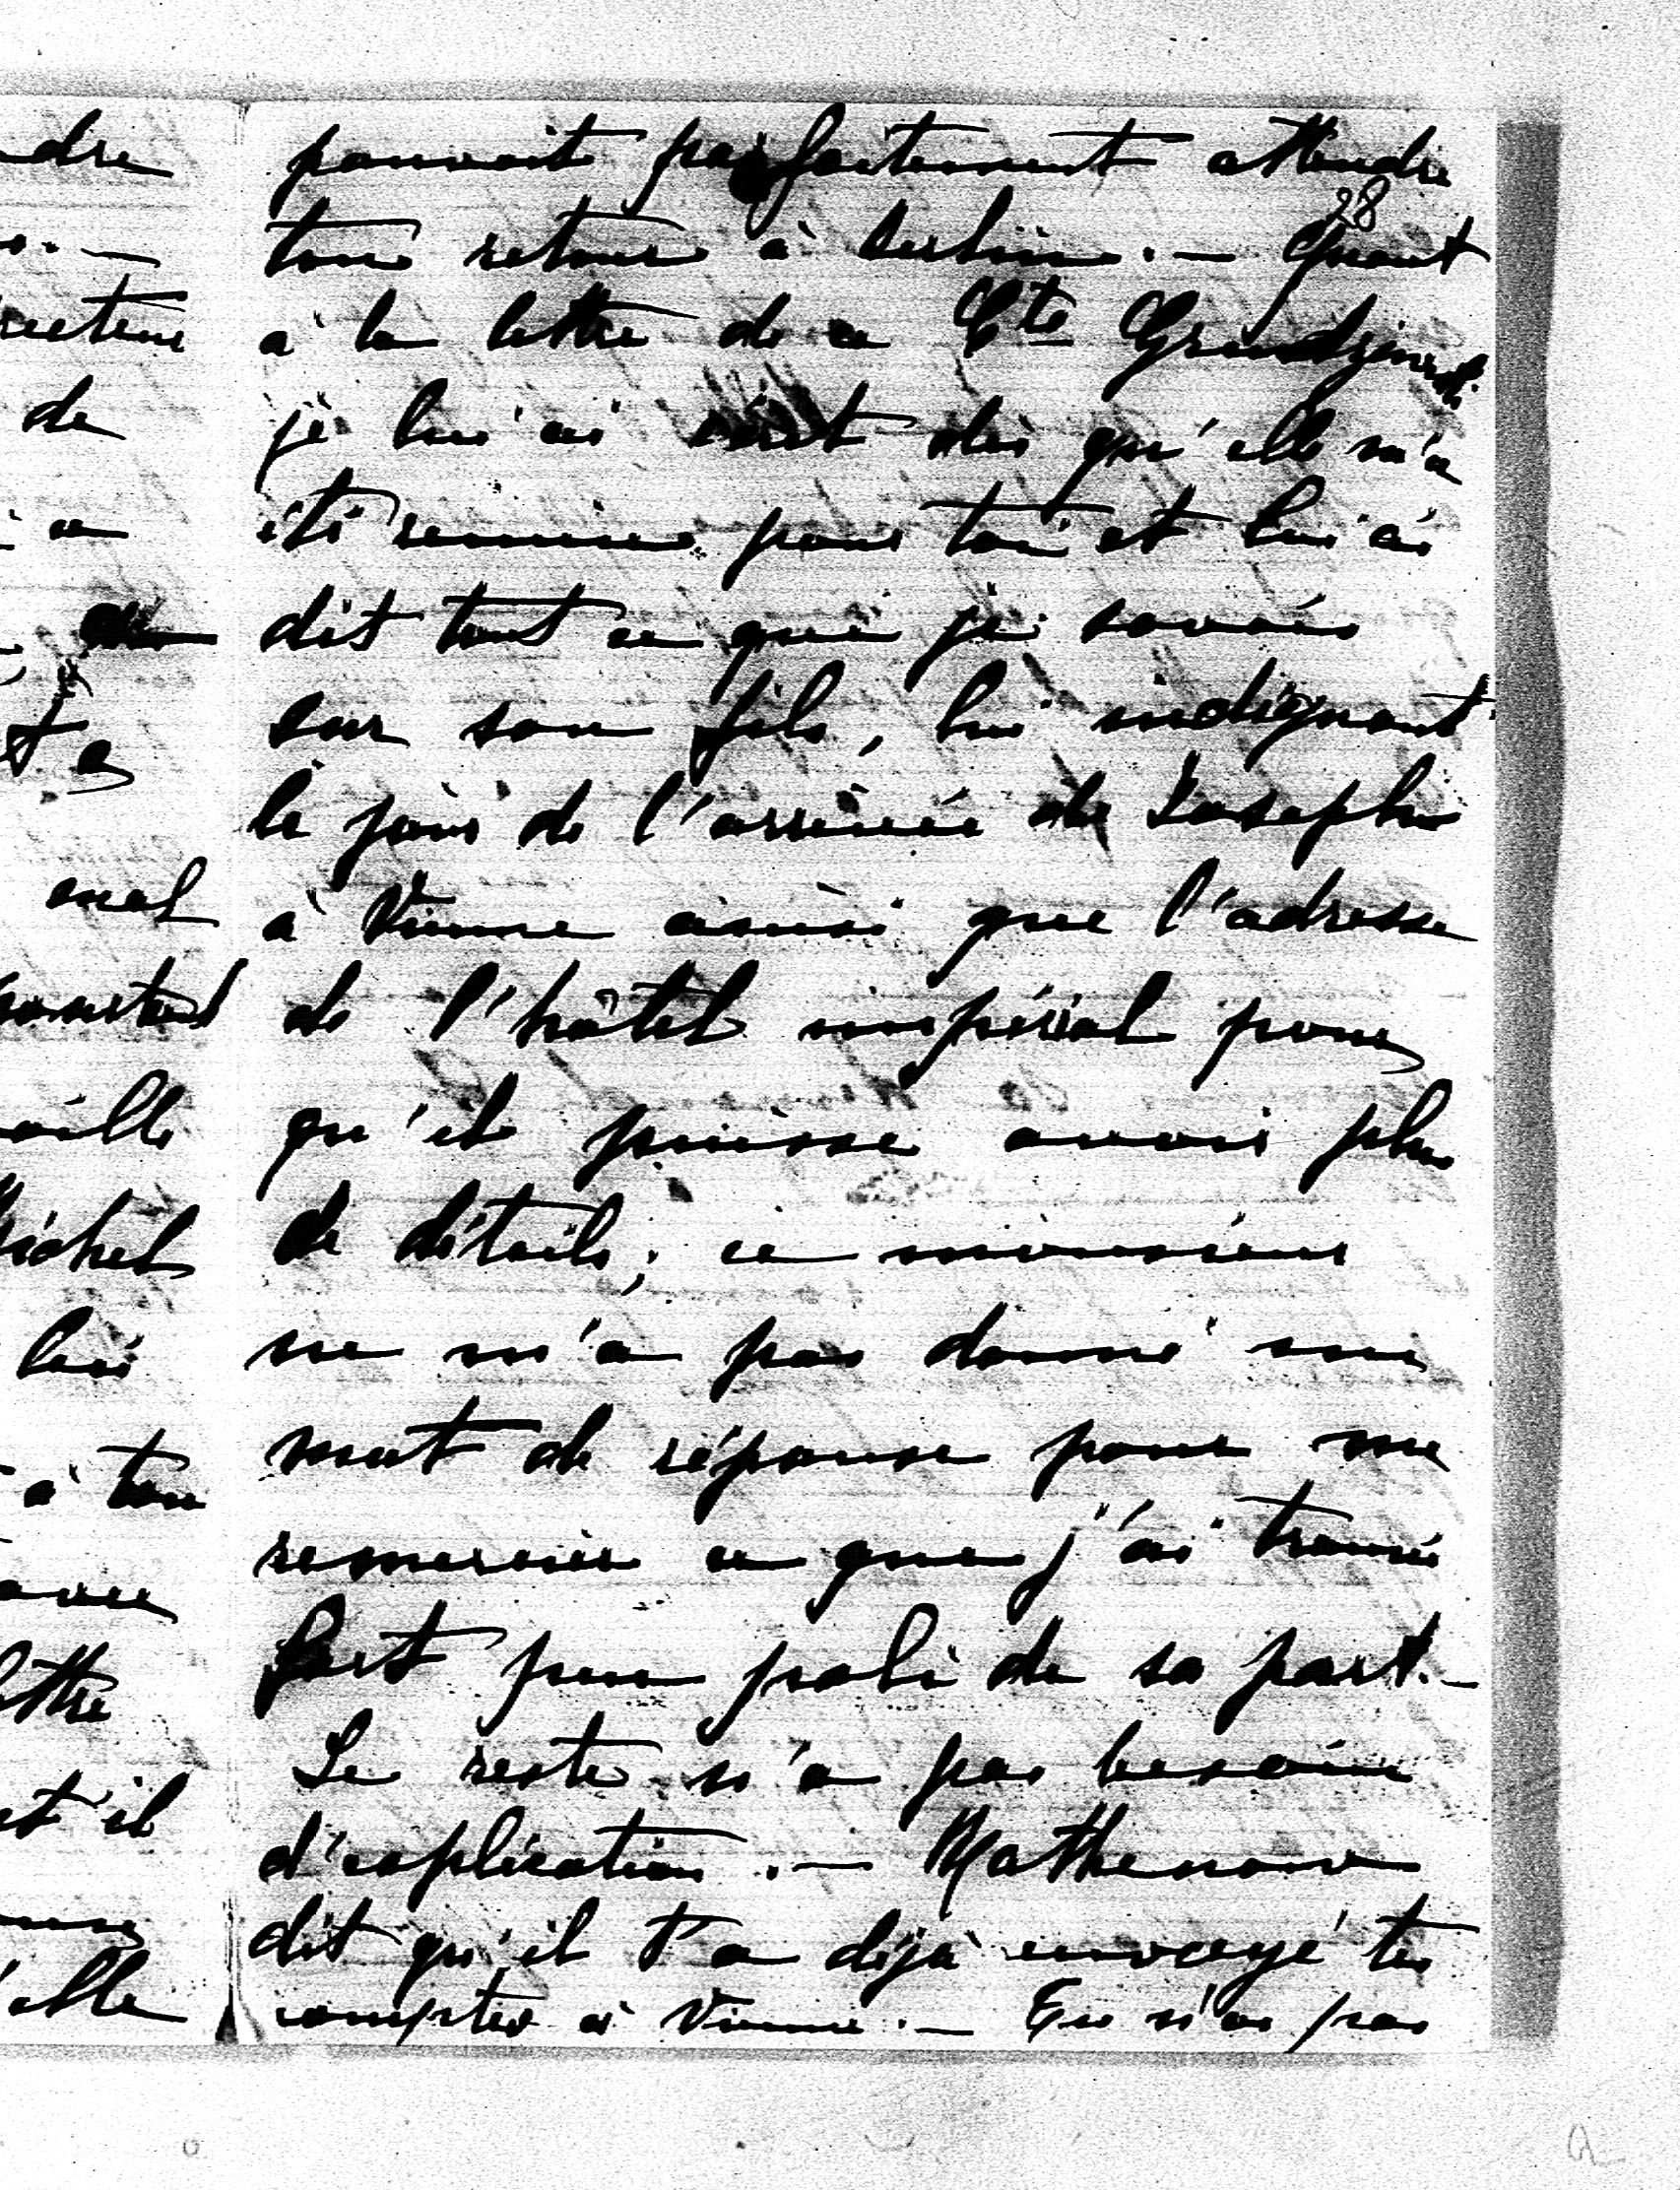 dre
recteur
de
a
mal
aille
Michel
lui
à ton
avec
lettre
et il
elle
28
pouvait parfaitement attendre
ton retour à Berlin. — Quant
à la lettre de ce Cte
je lui ai écrit dès qu'elle m'a
été remise pour toi et lui ai
dit tout ce que je savais
sur son fils, lui indiquant
le jour de l'arrivée de Joseph
à Vienne ainsi que l'adresse
de l'hôtel impérial pour
qu'il puisse avoir plus
de détails; ce monsieur
ne m'a pas donné un
mot de réponse pour me
remercier ce que j'ai trouvé
fort peu poli de sa part. —
Le reste n'a pas besoin
d'explication. — Mathenow
dit qu'il t'a déjà envoyé tes
comptes à Vienne. — Tu n'as pas